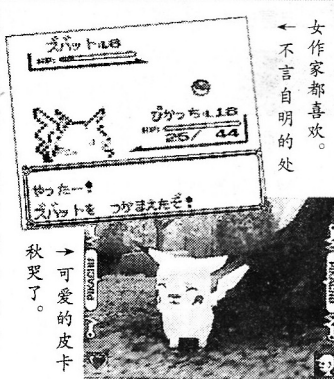 女作家都喜欢。
← 不言自明的处
ズバット :L8
HP:
ぴかっち :L18
HP:
26/ 44
やったー!
ズバットを つかまえたぞ!
→ 可爱的皮卡
秋哭了。
PIKACHU
PIKACHU